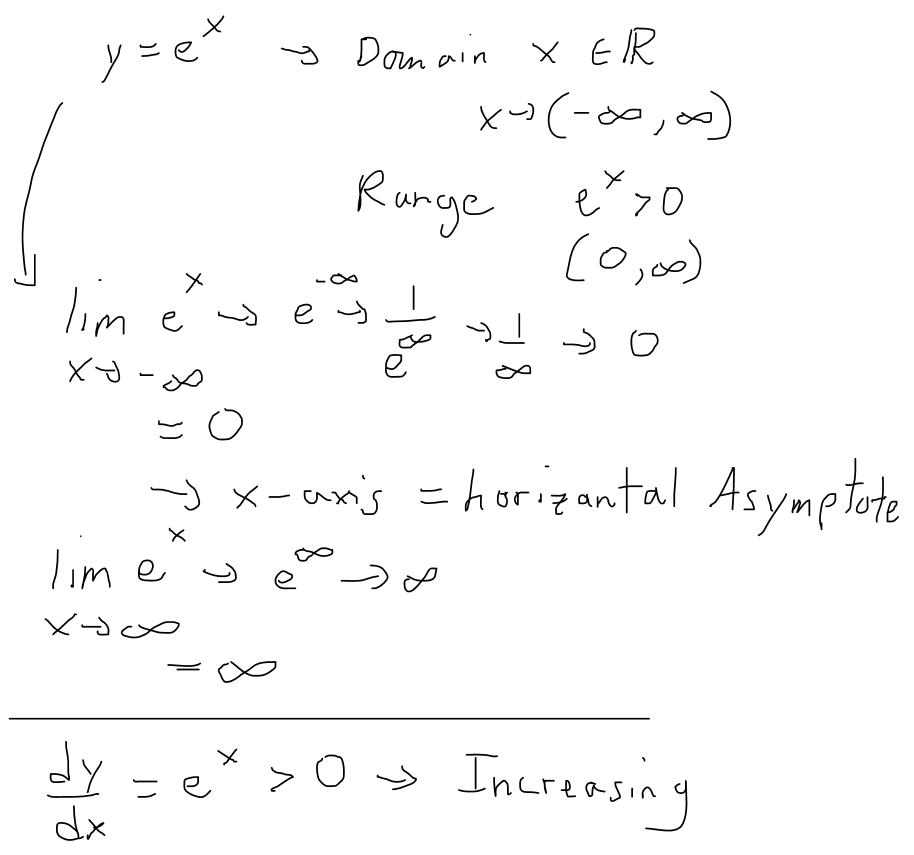 y = e^x → Domain x ∈ ℝ
x → (-∞, ∞)
Range e^x > 0
(0, ∞)
lim e^x → e^-∞ → 1/e^∞ → 1/∞ → 0
x → -∞
= 0
→ x-axis = horizantal Asymptote
lim e^x → e^∞ → ∞
x → ∞
= ∞
dy/dx = e^x > 0 → Increasing